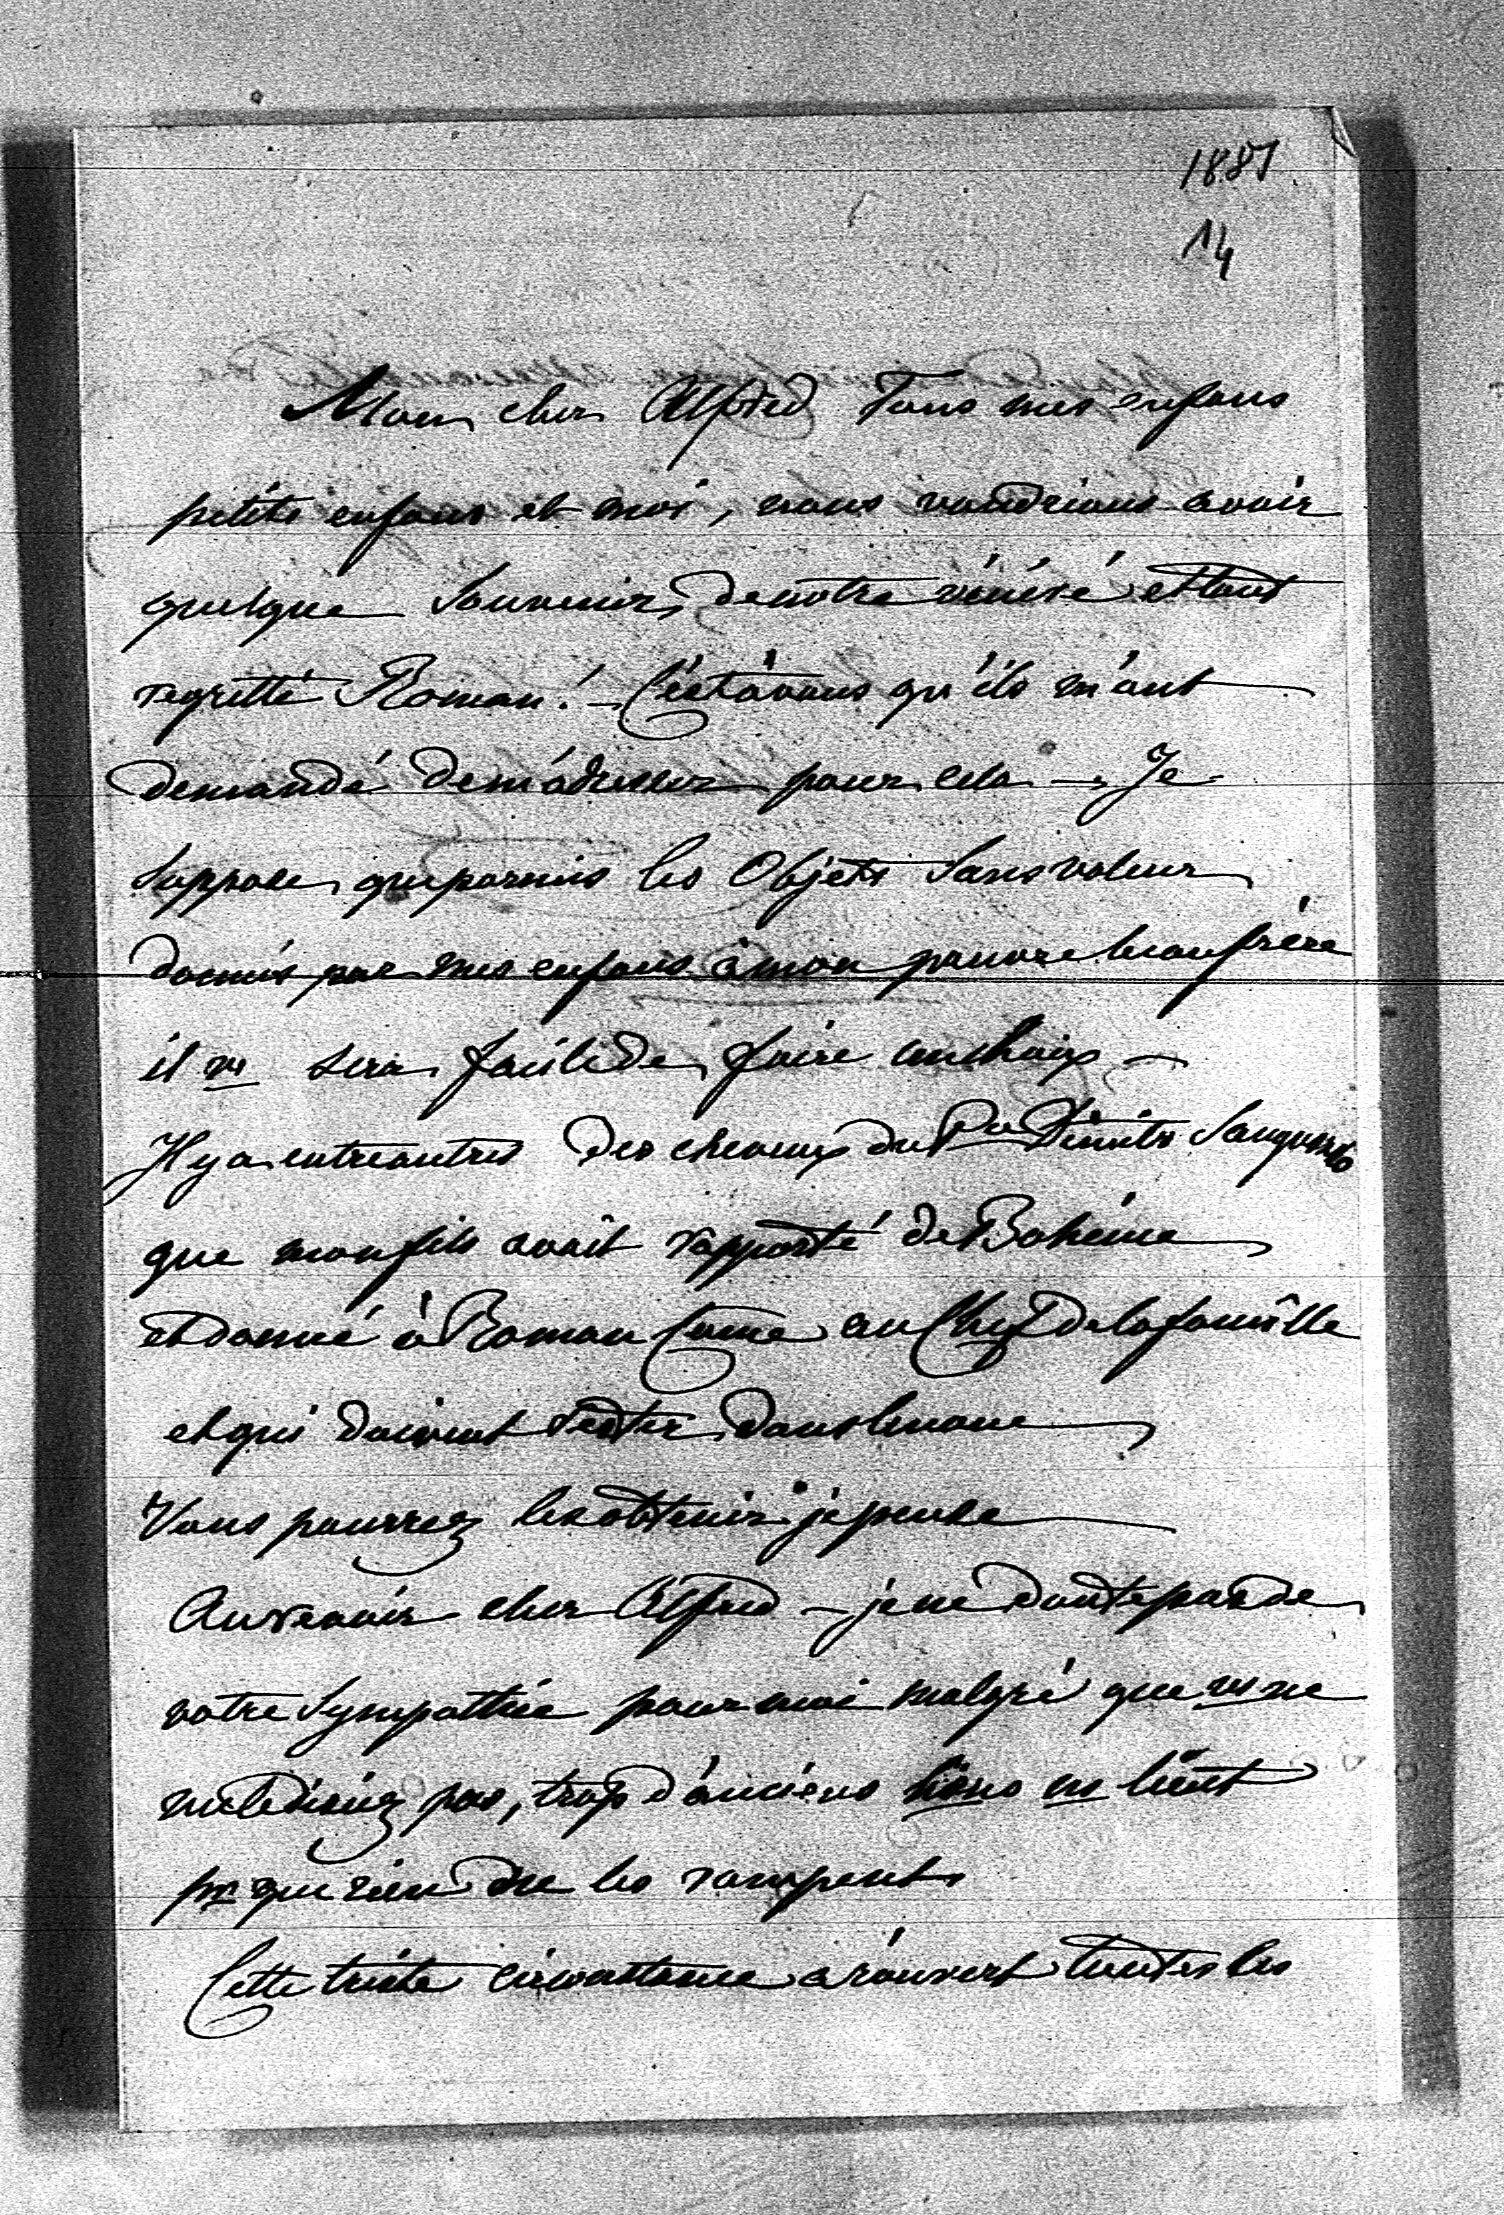 1881
14
Mon cher Alfred Tous mes enfans
petits enfans et moi, nous voudrions avoir
quelque Souvenir, de notre vénéré et tant
regretté Roman! – C'est à vous qu'ils m'ont
demandé de m'adresser pour cela – Je
Suppose, que parmis les Objets Sans valeur
donnés par mes enfans à mon pauvre beaufrère
il vs sera facile de faire un choix –
Il y a entreautres des cheveux du Pce Dimitr Sanguszko
que mon fils avait rapporté de Bohème
et donné à Roman Come au Chef de la famille
et qui doivent rester dans le nom
Vous pourrez les obtenir je pense
Au revoir cher Alfred – je ne doute pas de
votre Sympathie pour moi malgré que vs ne
me le disiez pas, trop d'anciens liens ns lient
pr que rien ne les rompent
Cette triste circonstance a rouvert toutes les